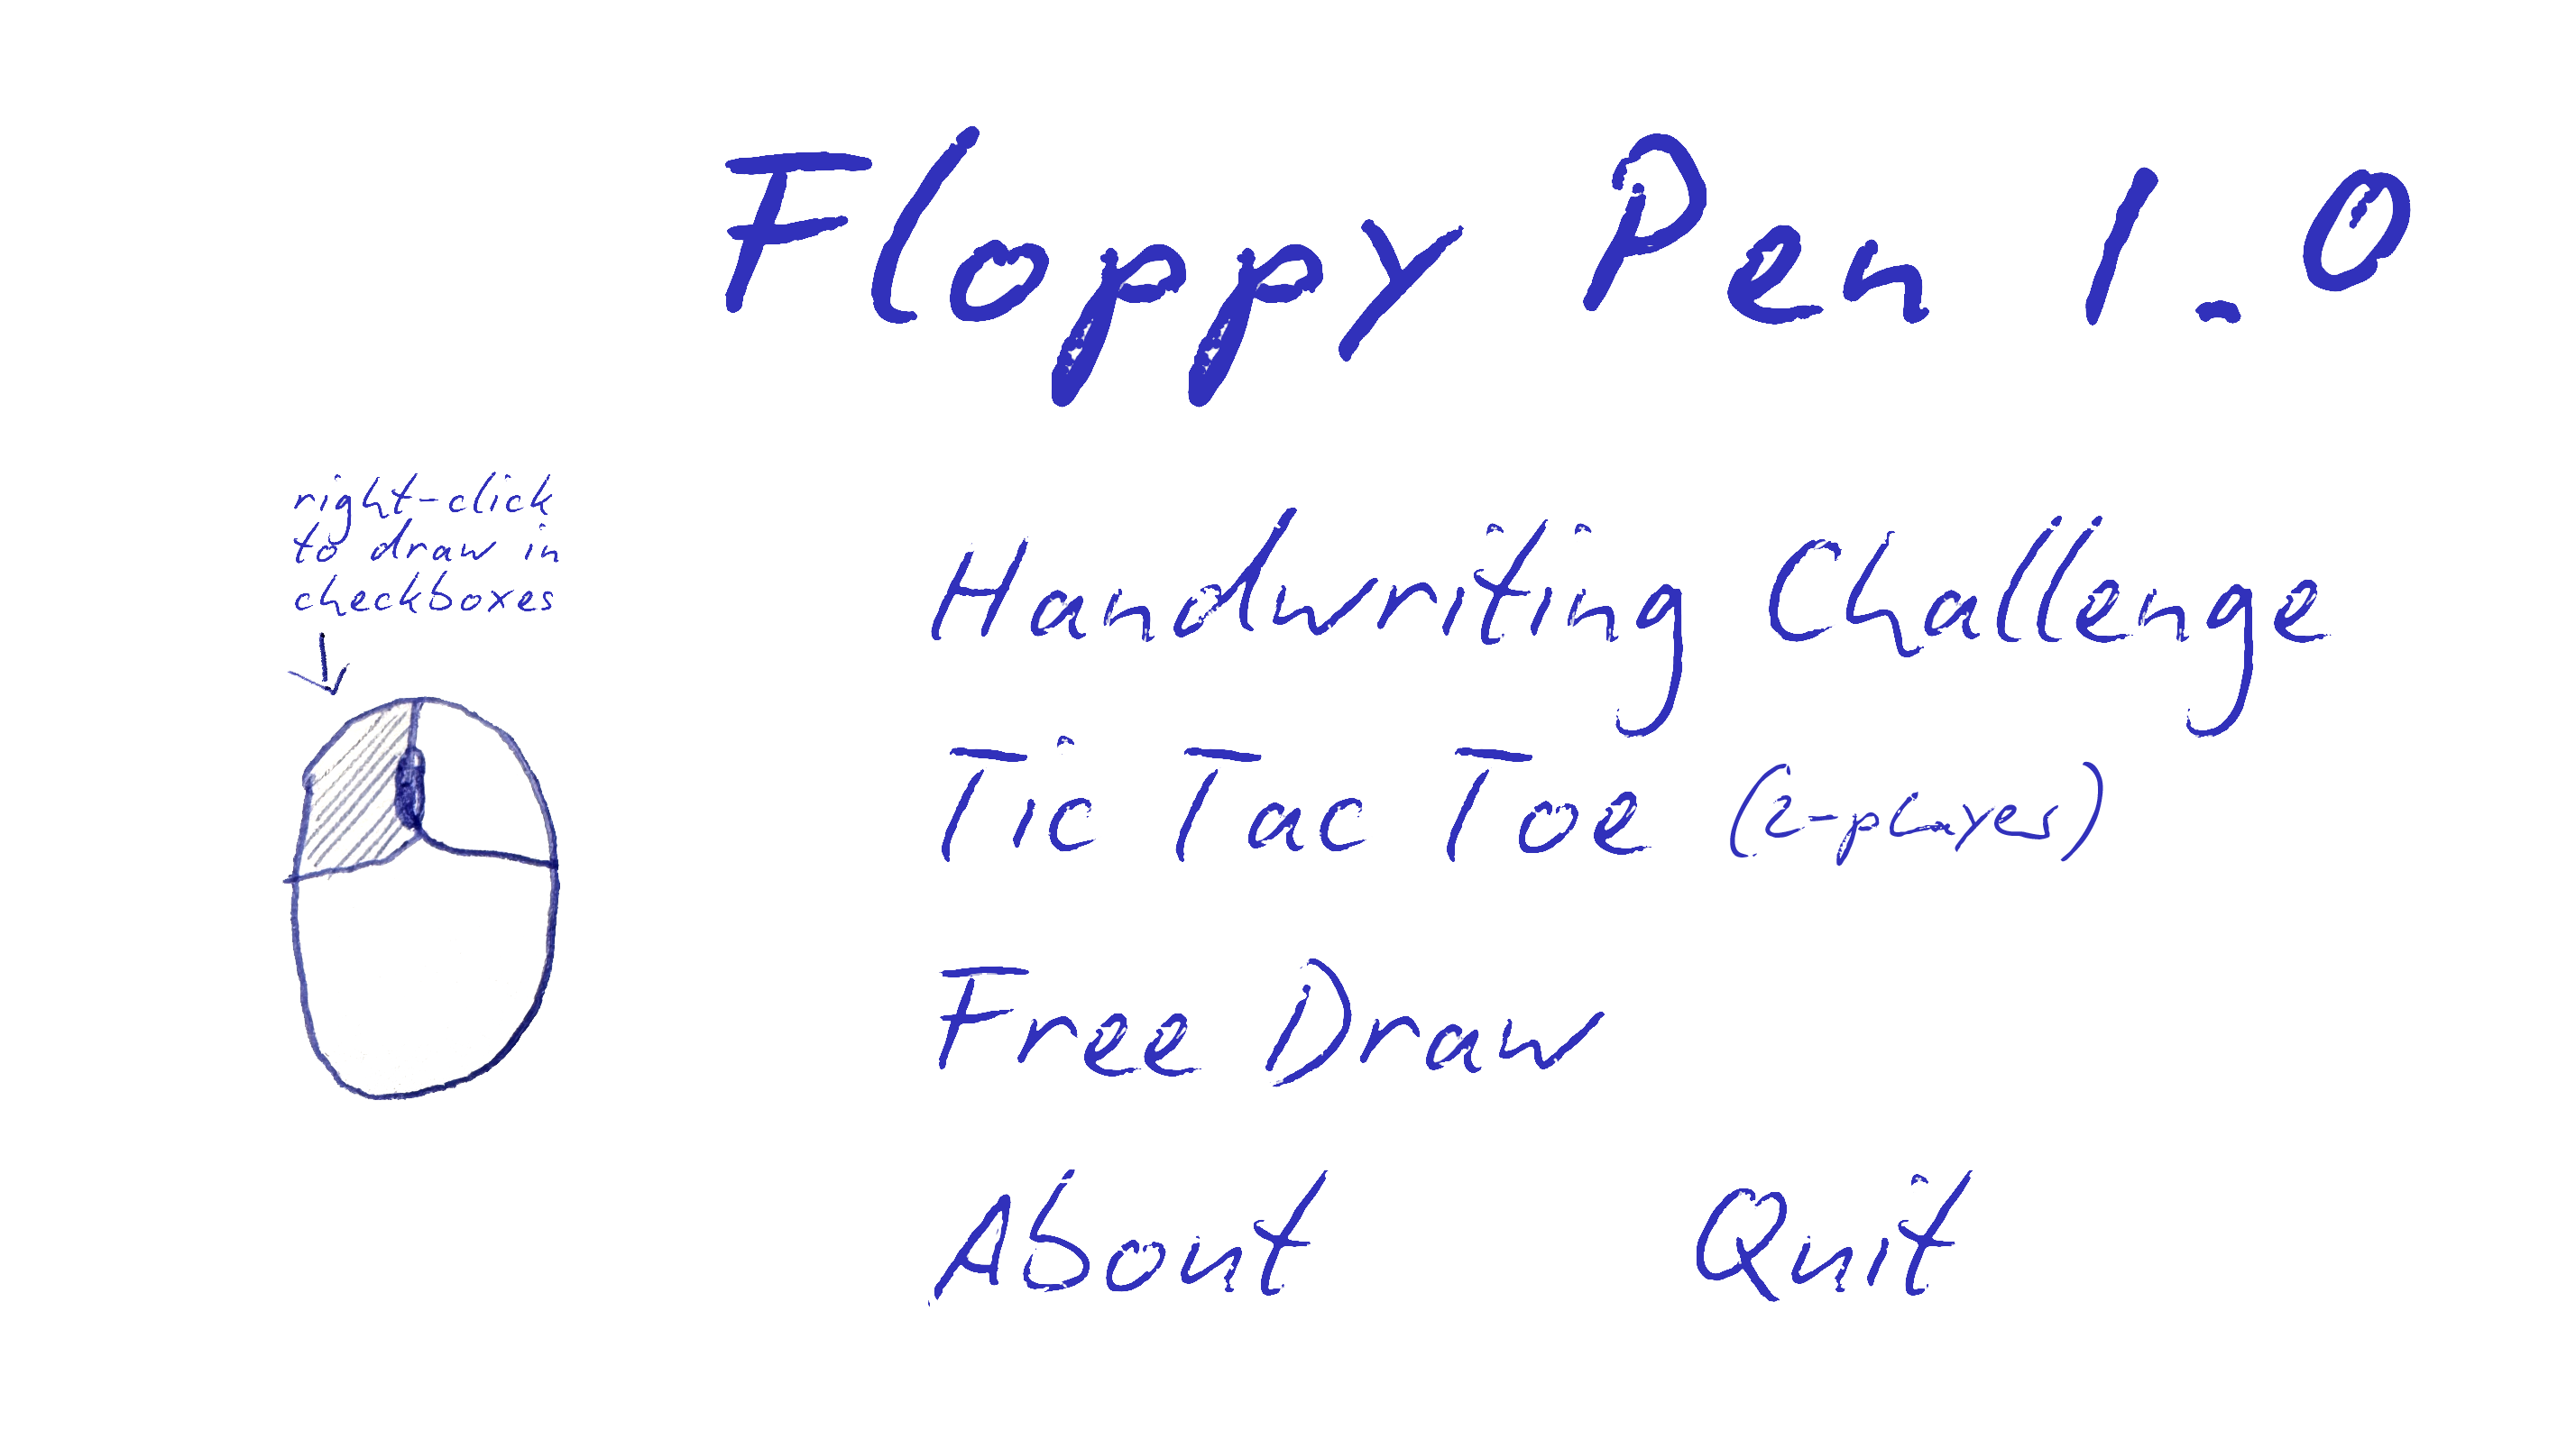 Floppy Pen 1.0
right-click
to draw in
checkboxes
Handwriting Challenge
Tic Tac Toe (2-player)
Free Draw
About Quit